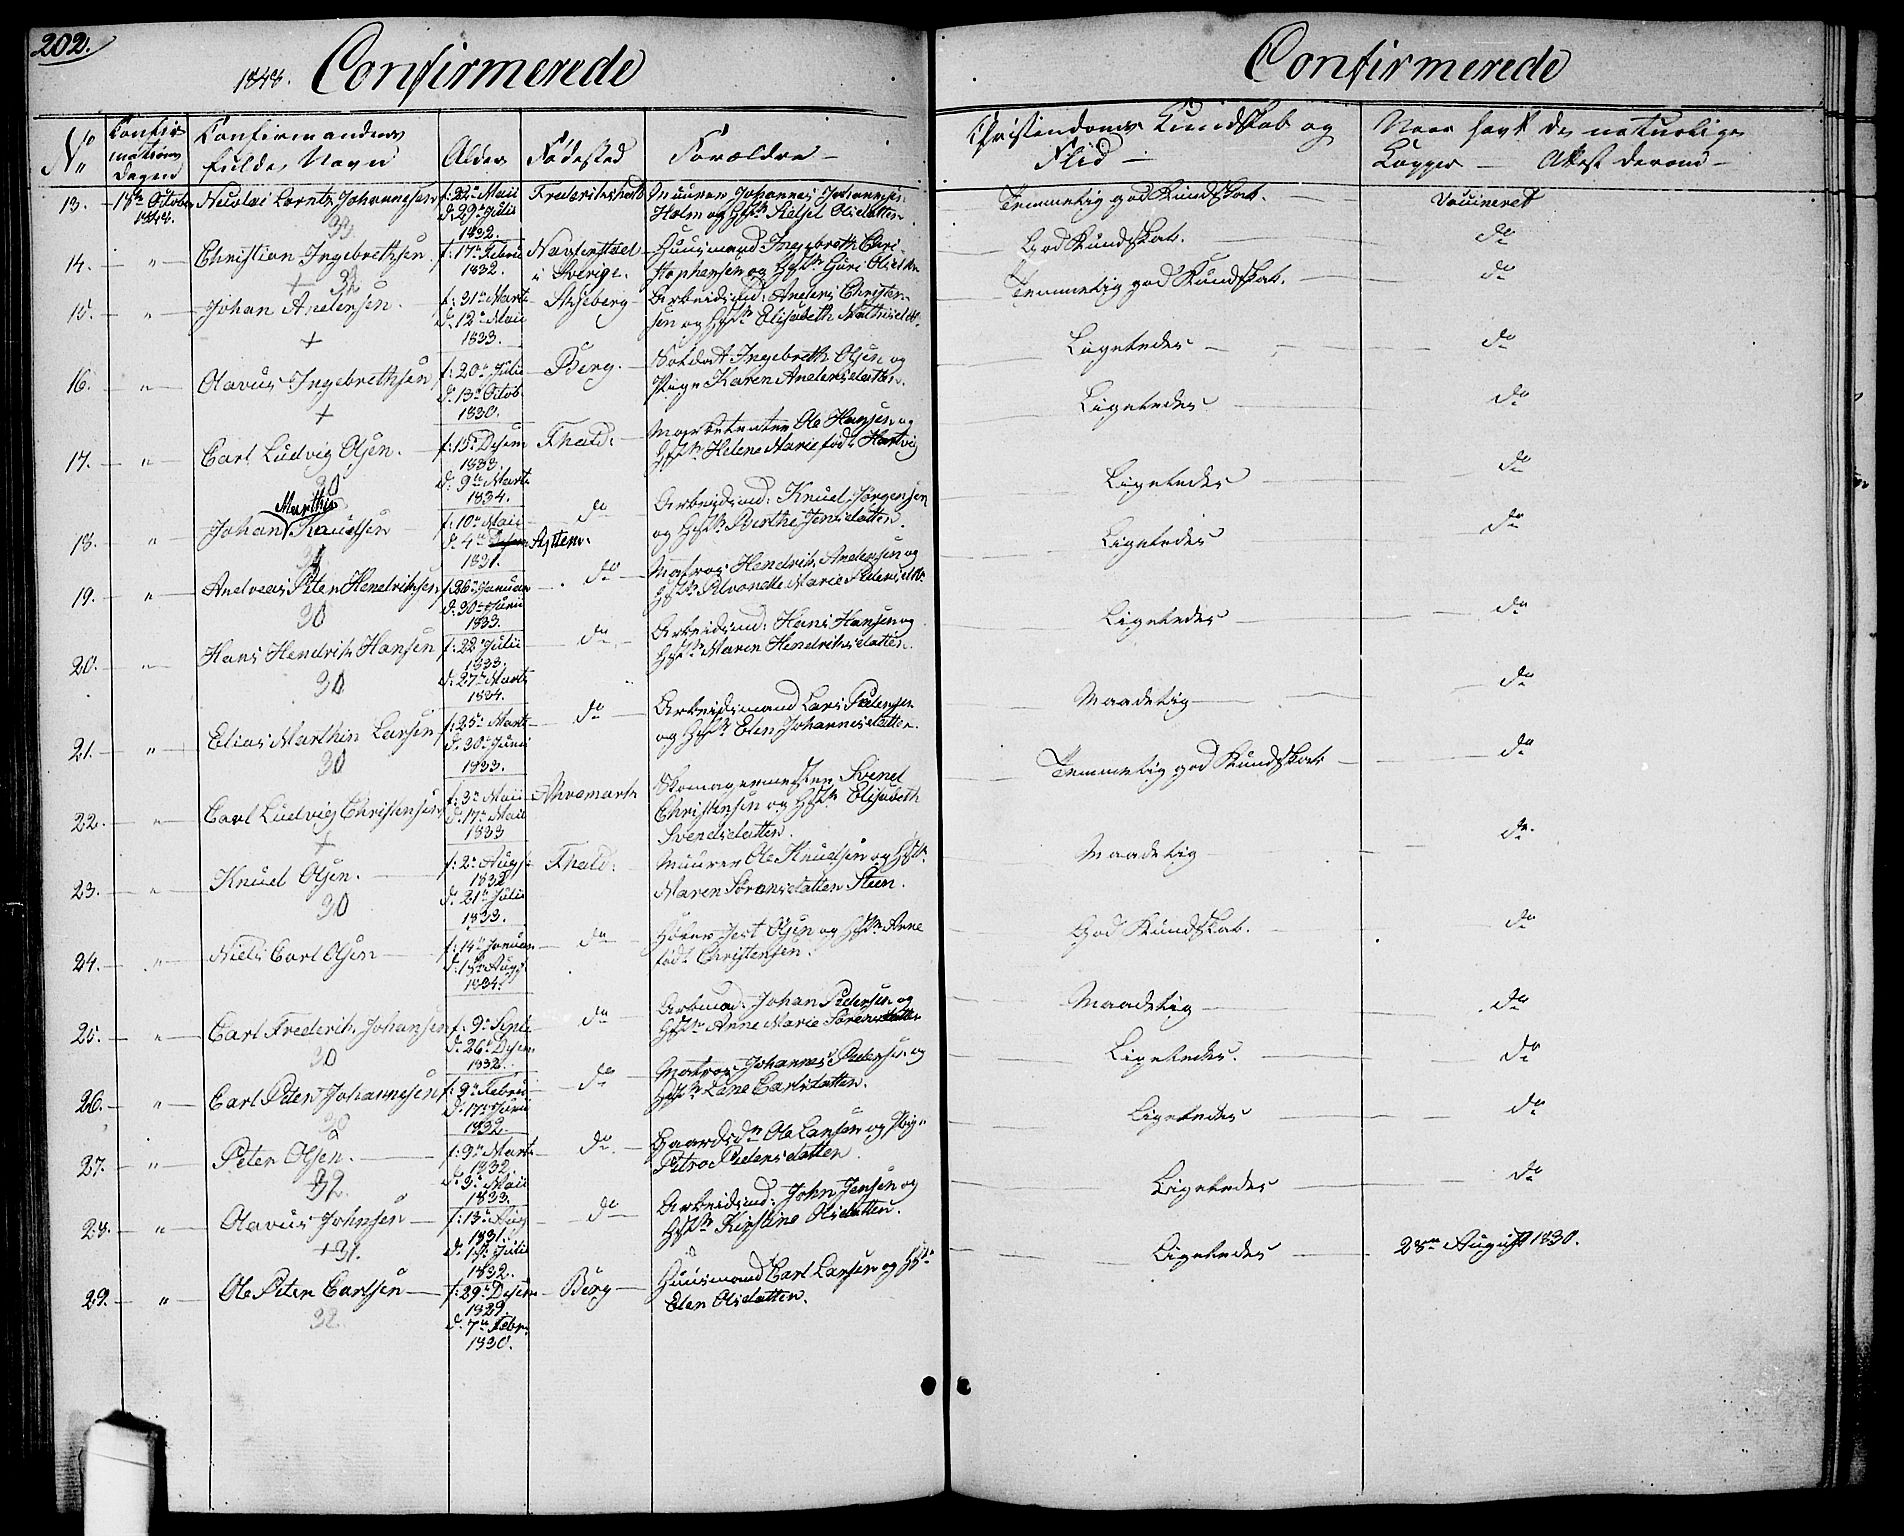 202.
1848. Confirmerede
Confirmerede
No
Confirmations Dagen
Confirmandens fulde Navn
Alder
Fødested
Forældre
Christendoms Kundskab og Flid
Naar havt de naturlige Kopper — Attest derom
13. 18de October 1848. Nicolai Lorntz Johannesen f: 22de Maii d: 29de Julii 1832. Frederikshald Muurer Johannes Johannesen Holm og Hst: Olsdatter Temmelig god Kundskab. Vaccineret
14. " Christian Ingebrethsen f: 17de Februar 1832. i Sverige. Huusmand Ingebreth Christophersen og Hst: Guri Olsdtr God Kundskab. do
15. " Johan Andersen. + f: 31te Marts d: 12te Maii 1833. Arbeidsmd: Anders Christensen og Hst: Elisabeth Mathisdtr. Temmelig god Kundskab. do
16. " Olavus Ingebrethsen + f: 20de Julii d: 13de Octob. 1830. Berg. Soldat Ingebreth Olsen og Pige Karen Andersdatter. Ligeledes do
17. " Carl Ludvig Olsen. 30 f: 15de Desem 1833. d: 9de Marts 1834. Fhald: Marketenter Ole Hansen og Hst: Helene Marie født Hartvig Ligeledes do
18. " Johan Marthin Knudsen f: 10de Maii d: 4de Septem. 1831. do Arbeidsmd: Knud Jørgensen og Hst: Berthe Jensdatter. Ligeledes do
19. " Andreas Peter Hendrichsen 30 f: 26de Januar d: 30te Junii 1833. do Matros Hendrik Andersen og Hst: Petronelle Marie Pedersdtr Ligeledes do
20. " Hans Hendrik Hansen 30 f: 22de Julii 1833. d: 27de Marts 1834. do Arbeidsmd: Hans Hansen og Hst: Maren Hendriksdatter. Ligeledes do
21. " Elias Marthin Larsen 30 f: 25de Marts d: 30te Junii 1833. do Arbeidsmand Lars Pedersen og Hst: Elen Johannesdatter. Maadelig do
22. " Carl Ludvig Christensen + f: 3de Maii d: 17de Maii 1833 Skomagermester Svend Christensen og Hst: Elisabeth Svendsdatter. Temmelig god Kundskab do
23. " Knud Olsen. 30 f: 2de Augs: 1832 d: 21de Julii 1833. Fhald: Muurer Ole Knudsen og Hst: Maren Sørensdatter Steen. Maadelig do
24. " Niels Carl Olsen f: 14de Januar d: 15de Augs. 1834. do Olsen og Hst: Anne født Christensen. God Kundskab. do
25. " Carl Frederik Johansen 30 f: 9de Septr d: 26de Desem 1832. do Arbmd: Johan Pedersen og Hst: Anne Marie Sørensdatter Maadelig do
26. " Carl Peter Johannesen 30 f: 9de Februar d: 17de Junii 1832. do Matros Johannes Pedersen og Hst: Lene Carlsdatter. Ligeledes. do
27. " Peter Olsen. 32. f: 9de Marts 1832. d: 3de Maii 1833. do Gaardsdr: Ole Larsen og Pige Petra Pedersdatter. Ligeledes do
28. " Olavus Johnsen +31. f: 13de Aug 1831. d: 1ste Julii 1832. do Arbeidsmd: John Jensen og Hst: Kirstine Olsdatter. Ligeledes do
29. " Ole Peter Carlsen 32. f: 29de Desem 1829 d: 7de Febr. 1830. Berg Huusmand Carl Larsen og Hst: Elen Olsdatter. Ligeledes 28de August 1830.